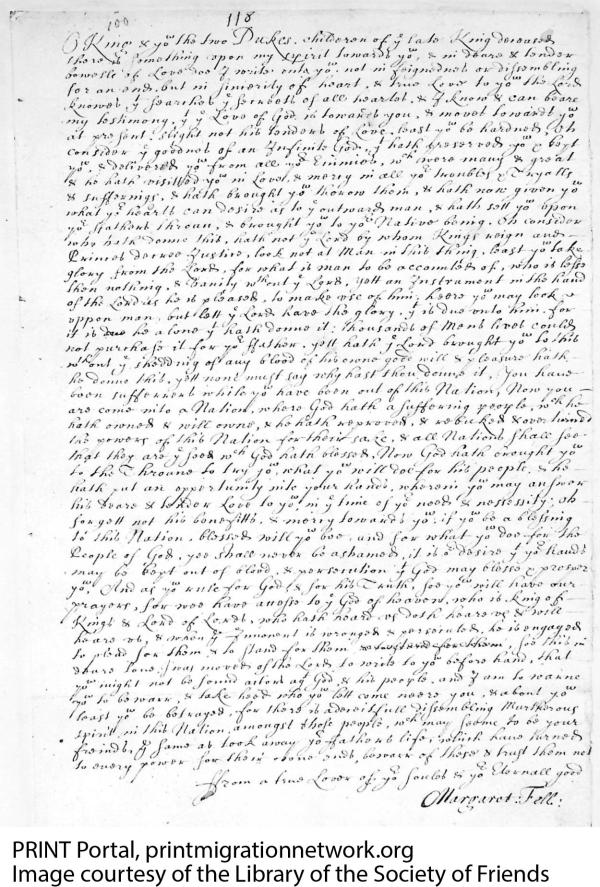 100 118
O King & yͤ the two Dukes, children of yͤ late King deceased
there is something upon my spirit towards yͧ, & in deare & tender
bowells of Love doe I write unto yͧ, not in feignednes or dissembling
for an end, but in sincerity of heart, & true Love to yͧ the Lord
knowes yͭ searches yͤ secreets of all heartes, & I know & can beare
my testimony, yͭ yͤ Love of God is towards you, & moves towards yͧ
at present: slight not his tenders of Love, least yͧ be hardned, Oh
consider yͤ goodnes of an Infinite God, yͭ hath preserved yͧ & kept
yͧ, & delivered yͧ from all yͬ Enimies, wͨʰ were many & great
& he hath visitted yͧ in Love, & mercy in all yͬ troubles & Tryalls
& sufferings, & hath brought yͧ thorow them, & hath now given yͧ
what yͬ hearts can desire as to yͤ outward man, & hath sett yͧ uppon
yͬ fathers throun, & brought yͧ to yͬ Native being. Oh consider
who hath donne this, hath not yͤ Lord by whom Kings reign and
Princes decree Justice, look not at Man in this thing, least yͧ take
glory from the Lord, for what is man to be accounted of, who is lesse
then nothing, & vanity wͭʰout yͤ Lord, yett an Instrument in the hand
of the Lord as he is pleased, to make use of him; heere yͧ may look
uppon man, but lett yͤ Lord have the glory, yͭ is due unto him, for
it is he alone yͭ hath donne it: thousands of Mens lives could
not purchase it for yͬ ffather, yett hath yͤ Lord brought yͧ to this
wͭʰout yͤ shedding of any blood of his owne good will & pleasure hath
he donne this, yett none must say why hast thou donne it, You have
been sufferrers while yͧ have been out of this Nation, Now you
are come into a Nation, where God hath a suffering people, wͨʰ he
hath owned & will owne, & he hath reproved, & rebuked & overturned
the powers of this Nation for their sake, & all Nations shall see
that they are yͤ seed wͨʰ God hath blessed, Now God hath brought yͧ
to the Throane to try yͧ, what yͧ will doe for his people, & he
hath put an opportunity into your hands, wherein yͧ may answer
his deare & tender Love to yͧ, in yͤ time of yͬ need & nessessity; Oh
forgett not his benefitts, & mercy towards yͧ; if yͧ be a blessing
to this Nation, blessed will yͧ bee, and for what yͧ doe for the
People of God, yee shall never be ashamed, it is oͬ desire yͭ yͬ hands
may be kept out of blood, & persecution yͭ God may blesse & prosper
yͧ, And as yͧ rule for God, & for his Truth, soe yͧ will have our
prayers, for wee have accesse to yͤ God of heaven, who is King of
Kings & Lord of Lords, who hath heard us doth heare us & will
heare us, & when yͤ Innocent is wronged & persecuted, he is engaged
to plead for them, & to stand for them, soe this in
deare Love, I was moved of the Lord to write to yͧ before hand, that
yͧ might not be found actors agͭ God & his people, and I am to warne
yͧ to beware, & take heed who yͧ lett come neere you, & about yͧ
least yͧ be betrayed, for there is a deceitfull dissembling Murtherous
spirit in this Nation, amongst those people, wͨʰ may seeme to be your
freinds, yͤ same as took away yͬ fathers life, which have turned
to every power for their owne ends, beware of these & trust them not
ffrom a true Lover of yͬ soules & yͬ Eternall good
Margaret: Fell:
PRINT Portal, printmigrationnetwork.org
Image courtesy of the Library of the Society of Friends